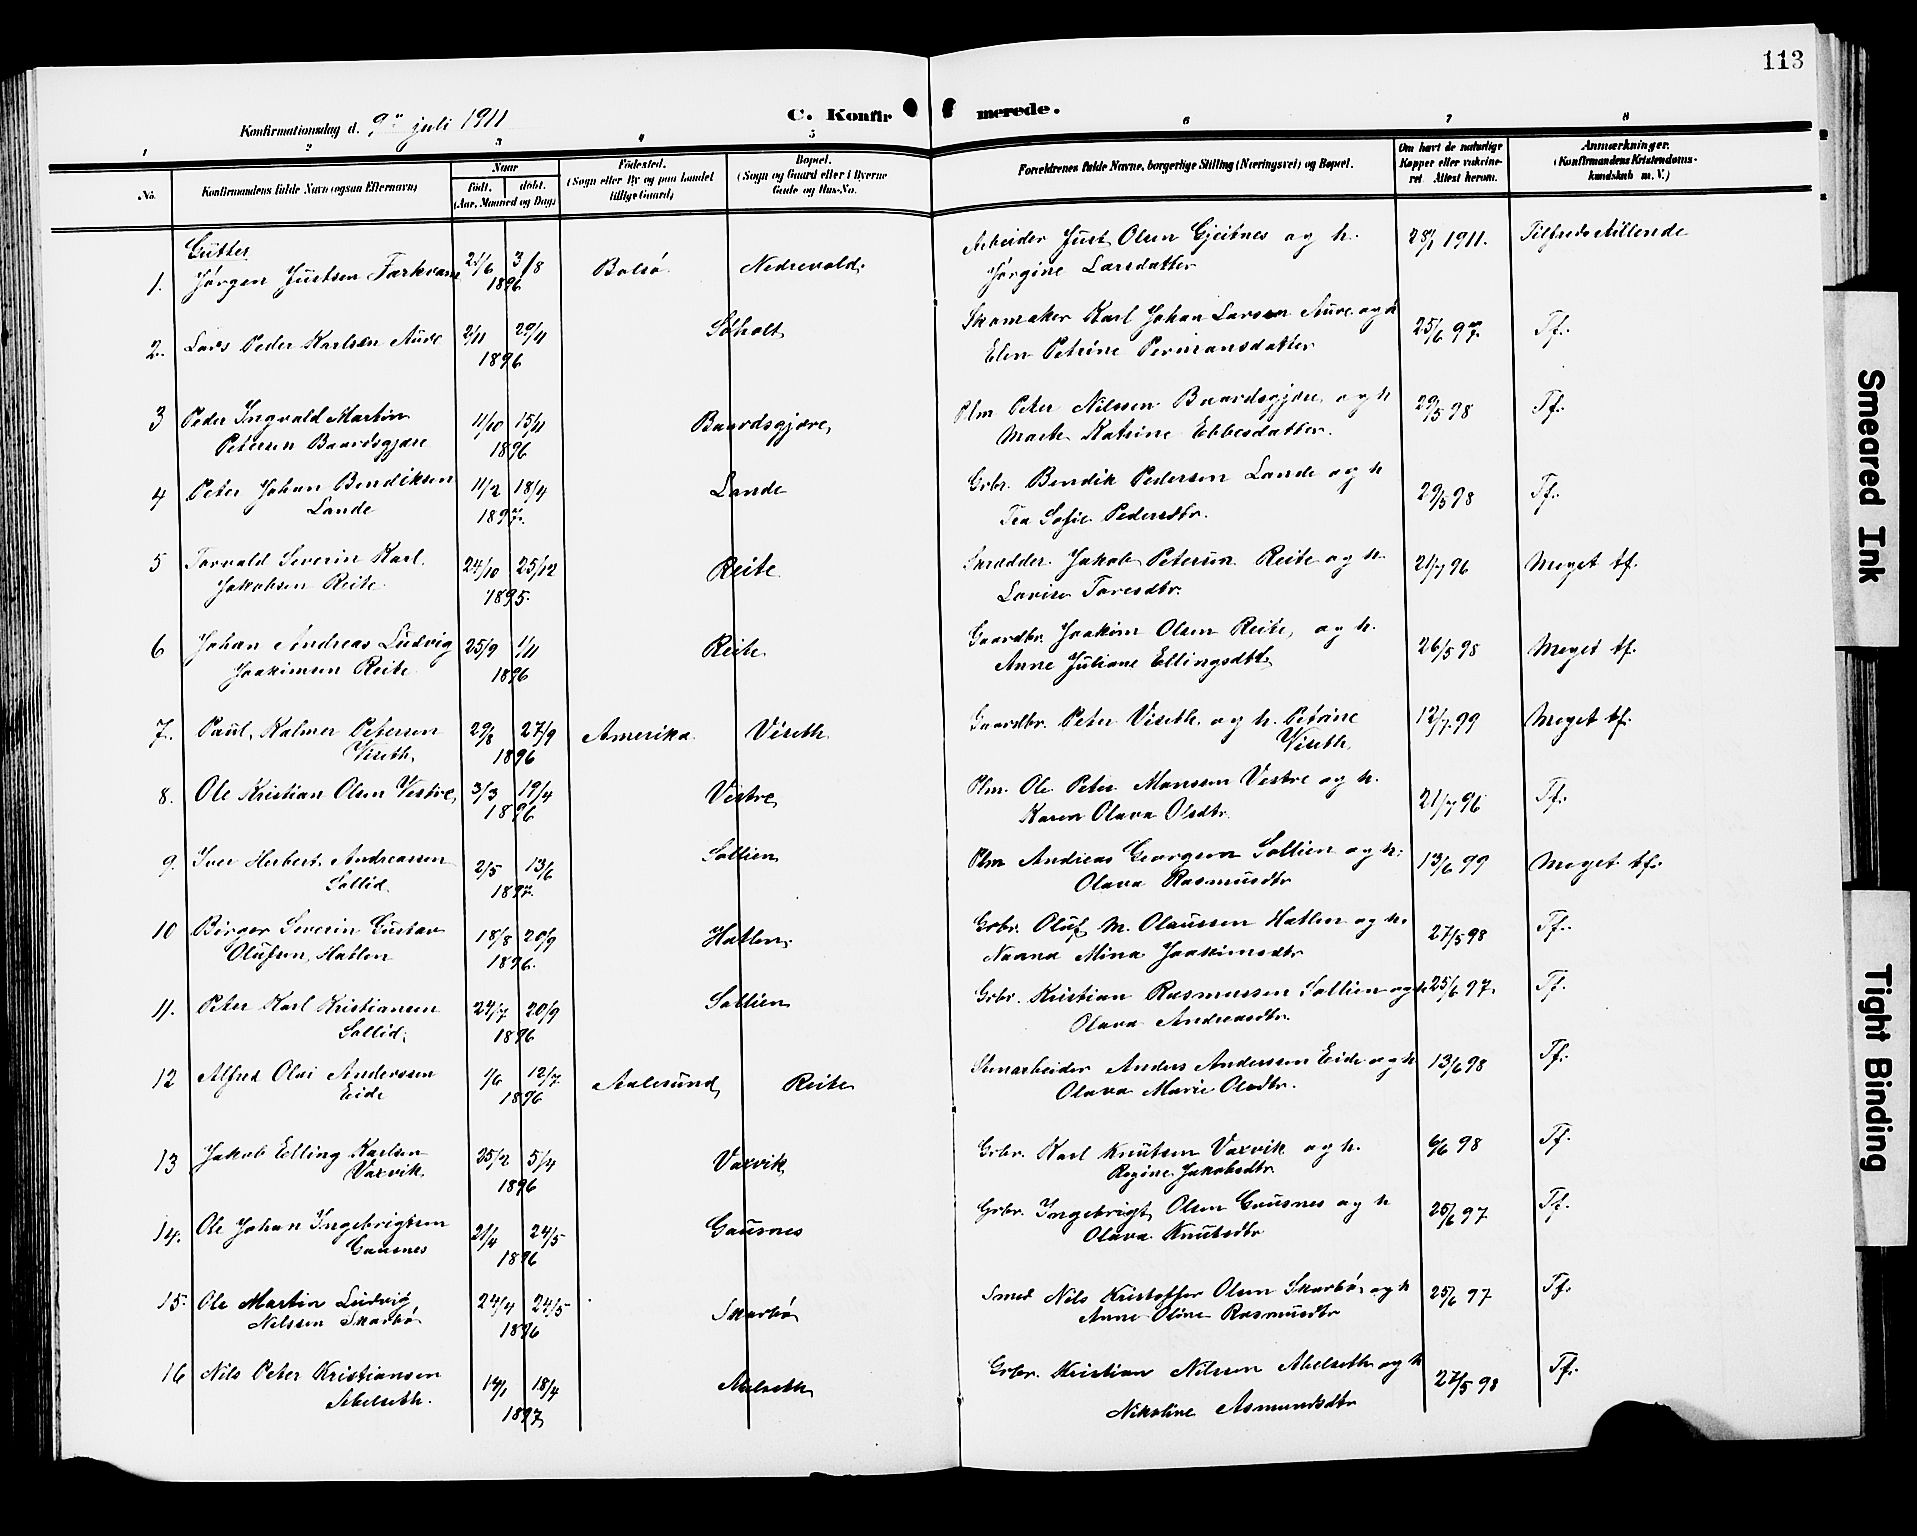 113
C. Konfirmerede.
Konfirmationsdag d. 9de juli 1911
1 2 3 4 5 6 7 8
No.
Konfirmandens fulde Navn (ogsaa Efternavn)
Naar
født. døbt.
(Aar, Maaned og Dag)
Fødested.
(Sogn eller By og paa Landet
tillige Gaard)
Bopæl.
(Sogn og Gaard eller i Byerne
Gade og Hus-No.
Forældrenes fulde Navne, borgerlige Stilling (Næringsvei) og Bopæl.
Om havt de naturlige
Kopper eller vaccine-
ret Attest herom.
Anmærkninger.
(Konfirmandens Kristendoms-
kundskab m. V.)
Gutter
1. Jørgen Justsen Farkvam 21/6 3/8 1896 Bolsø Nedrevold Arbeider Just Olsen Gjeitnes og h. 28/1 1911. Tilfredsstillende
Jørgine Larsdatter
2. Lars Peder Karlsen Aure 2/11 29/4 1896 Søholt Skomaker Karl Johan Larsen Aure og h 25/6 97 Tf.
Elen Petrine Permansdatter
3 Peder Ingvald Martin 11/10 15/11 Baardsgjære Plm Peter Nilssen Baardsgjære og h 29/5 98 Tf.
Petersen Baardsgjære 1896 Marte Katrine Ebbesdatter.
4 Peter Johan Bendiksen 11/2 18/4 Lande Grbr. Bendik Pedersen Lande og h 29/5 98 Tf.
Lande 1897. Tea Sofie Pedersdtr.
5 Torvald Severin Karl 24/10 25/12 Reite Skrædder Jakob Petersen Reite og h. 21/7 96 Meget tf.
Jakobsen Reite 1895. Lovise Toresdtr.
6 Johan Andreas Ludvig 25/9 1/11 Reite Gaardbr. Joakim Olsen Reite, og h. 26/5 98 Meget tf.
Joakimsen Reite 1896 Anne Juliane Ellingsdtr
7. Paul Kalmer Petersen 29/8 27/9 Amerika Viseth Gaardbr. Peter Viseth og h. Petrine 12/7 99 Meget tf.
Viseth 1896 Viseth
8. Ole Kristian Olsen Vestre 3/3 19/4 1896 Vestre Plm. Ole Peter Monssen Vestre og h. 21/7 96 Tf.
Karen Olava Olsdtr.
9. Iver Herbert Andreassen 2/5 13/6 Sollien Plm Andreas Georgsen Sollien og h. 13/6 99 Meget tf.
Sollid. 1897. Olava Rasmusdtr
10 Birger Severin Gustav 18/8 20/9 Hatlen. Grbr. Oluf M. Olaussen Hatlen og h. 27/5 98 Tf.
Olufsen Hatlen 1896. Naana Mina Joakimsdtr
11. Peter Karl Kristiansen 24/7 20/9 Sollien Grbr. Kristian Rasmussen Sollien og h 25/6 97. Tf.
Sollid. 1896 Olava Andreasdtr.
12 Alfred Olai Anderssen 1/6 12/7 Aalesund Reite Stenarbeider Anders Anderssen Eide og h 13/6 98 Tf.
Eide 1896 Olava Marie Olsdtr.
13 Jakob Elling Karlsen 25/2 5/4 Vaxvik Grbr. Karl Knutsen Vaxvik og h. 6/6 98 Tf.
Vaxvik. 1896 Regine Jakobsdtr.
14. Ole Johan Ingebrigtsen 21/4 24/5 Gausnes Grbr. Ingebrigt Olsen Gausnes og h 25/6 97 Tf.
Gausnes 1896 Olava Knutsdtr
15. Ole Martin Ludvig 24/4 24/5 Skarbø Smed Nils Kristoffer Olsen Skarbø og h 25/6 97 Tf.
Nilssen Skarbø 1896 Anne Oline Rasmusdtr
16 Nils Peter Kristiansen 14/1 18/4 Abelseth Grbr. Kristian Nilssen Abelseth og h 27/5 98 Tf.
Abelseth. 1897 Nikoline Asmundsdtr
Smeared Ink
Tight Binding